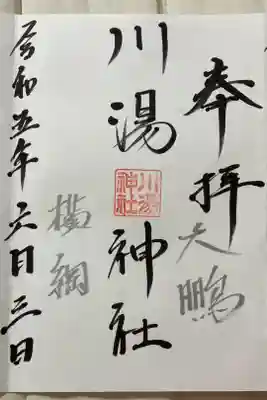 奉拝
大鵬
川湯神社
川湯神社
横綱
令和五年六月三日